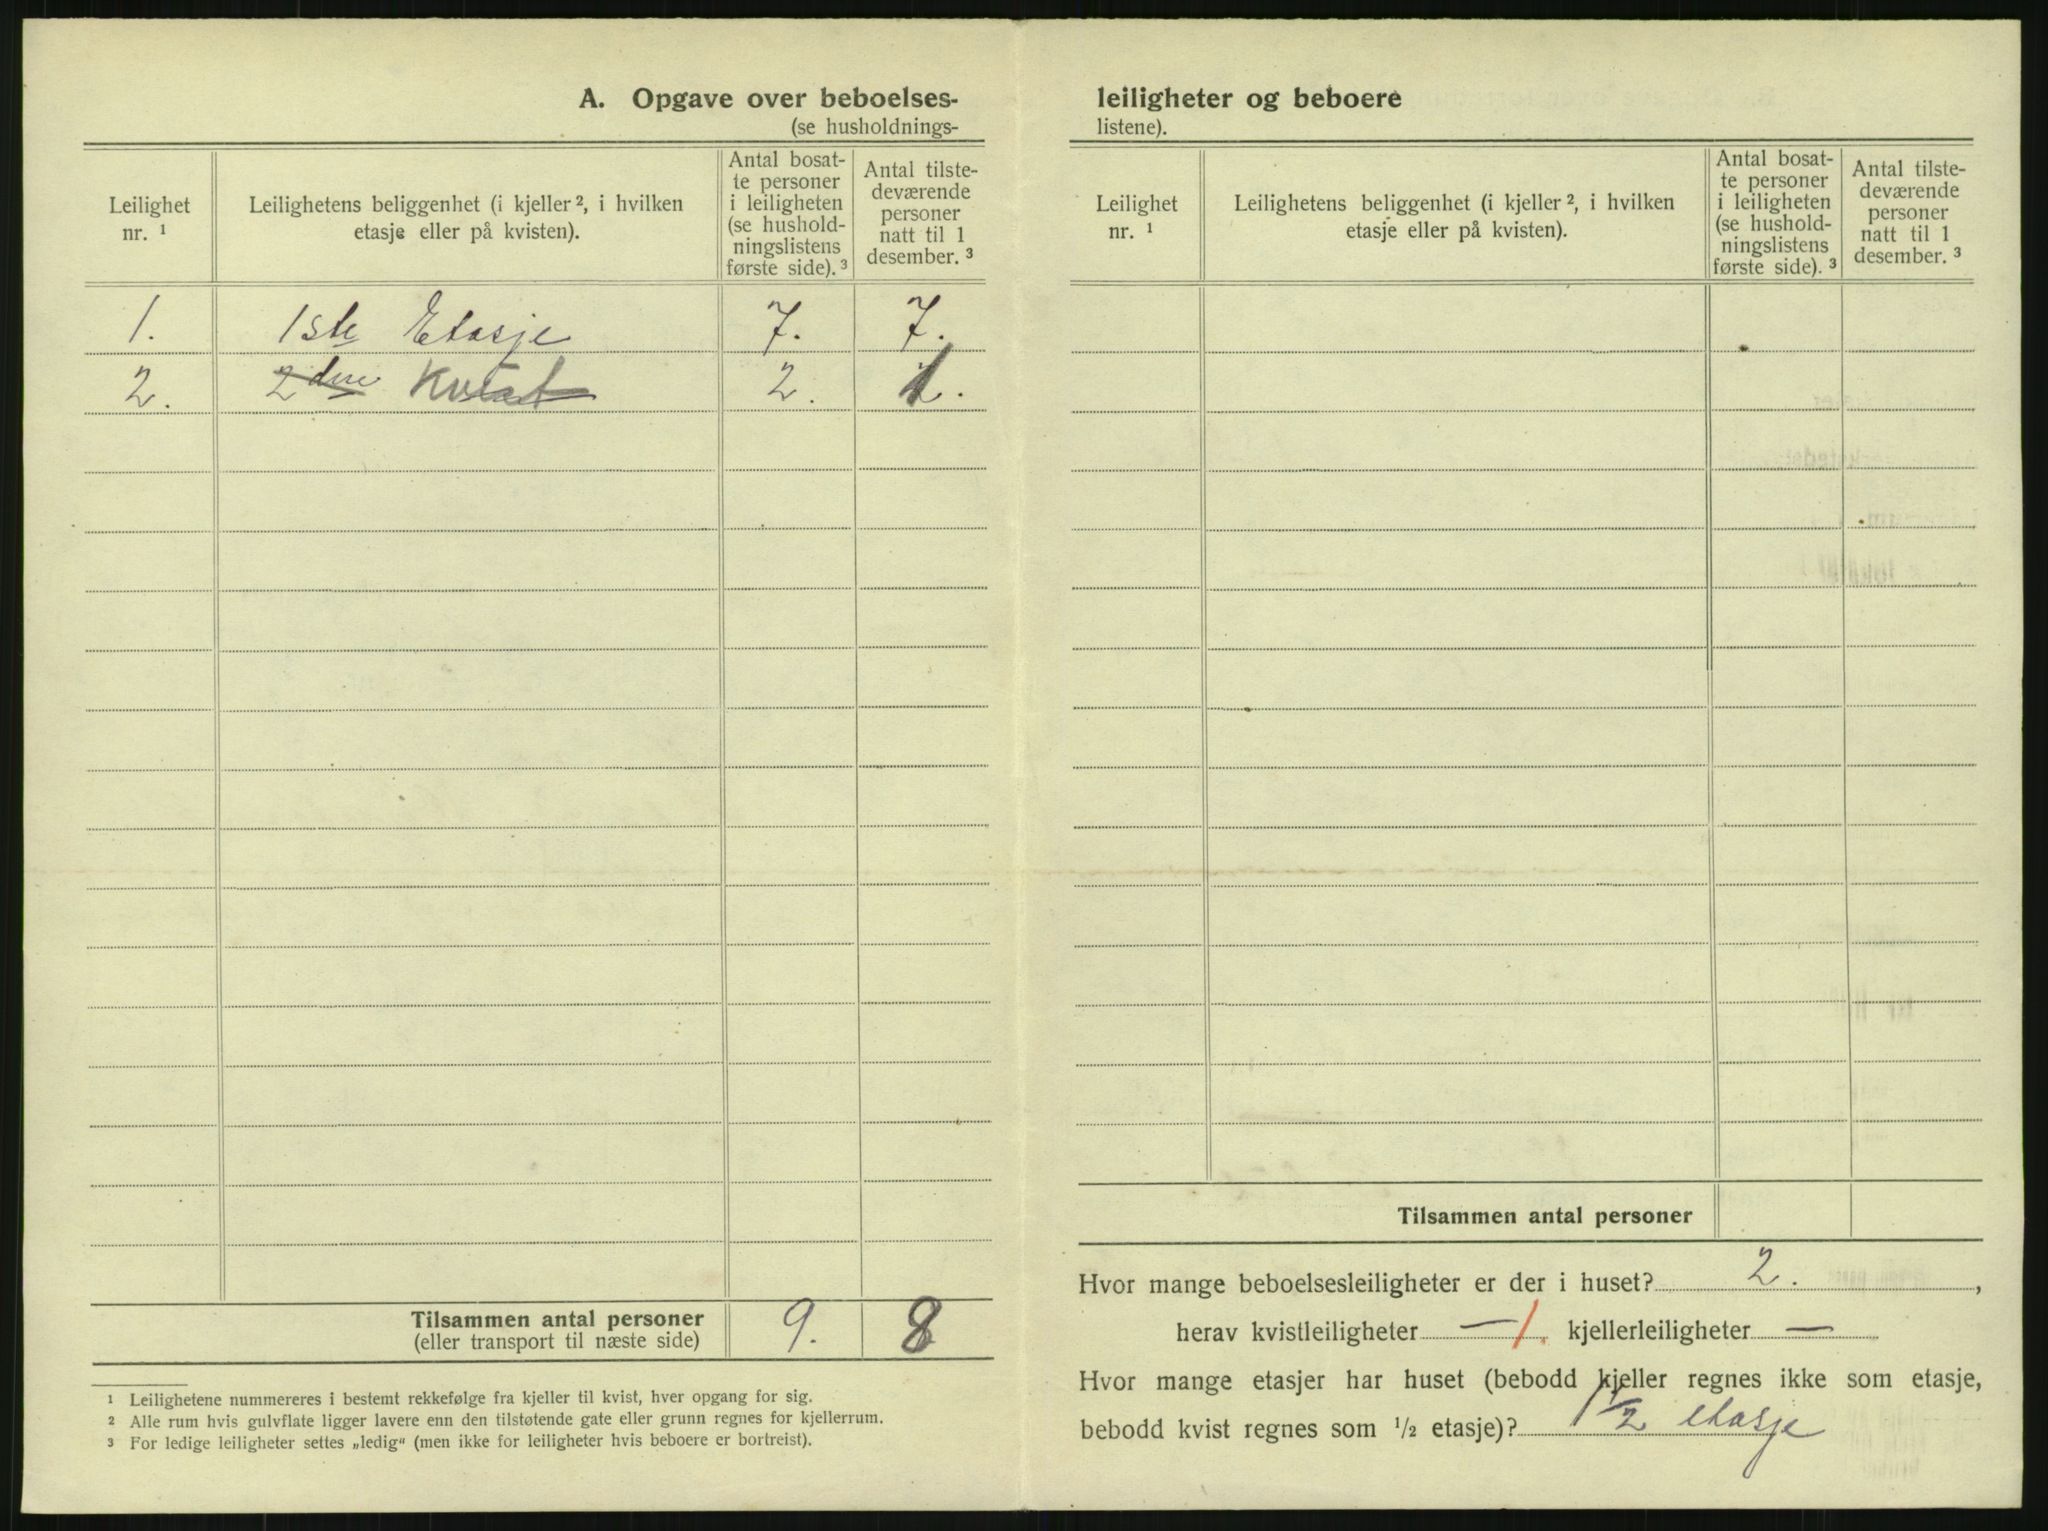 A. Opgave over beboelses-
(se husholdnings-
Leilighet nr. ¹
Leilighetens beliggenhet (i kjeller ², i hvilken
etasje eller på kvisten).
Antal bosat-
te personer
i leiligheten
(se hushold-
ningslistens
første side). ³
Antal tilste-
deværende
personer
natt til 1
desember. ³
1. 1ste Etasje 7. 7.
2. 2den Kvist 2. 1.
Tilsammen antal personer 9. 8
(eller transport til næste side)
¹ Leilighetene nummereres i bestemt rekkefølge fra kjeller til kvist, hver opgang for sig.
² Alle rum hvis gulvflate ligger lavere enn den tilstøtende gate eller grunn regnes for kjellerrum.
³ For ledige leiligheter settes „ledig“ (men ikke for leiligheter hvis beboere er bortreist).
leiligheter og beboere
listene).
Leilighet nr. ¹
Leilighetens beliggenhet (i kjeller ², i hvilken
etasje eller på kvisten).
Antal bosat-
te personer
i leiligheten
(se hushold-
ningslistens
første side). ³
Antal tilste-
deværende
personer
natt til 1
desember. ³
Tilsammen antal personer
Hvor mange beboelsesleiligheter er der i huset? 2. ,
herav kvistleiligheter — 1. kjellerleiligheter —
Hvor mange etasjer har huset (bebodd kjeller regnes ikke som etasje,
bebodd kvist regnes som ½ etasje)? 1½ etasje